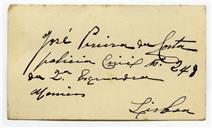 José Pereira da Costa
policia Civil Nº 248
da 2ª Esquadra
Lisboa